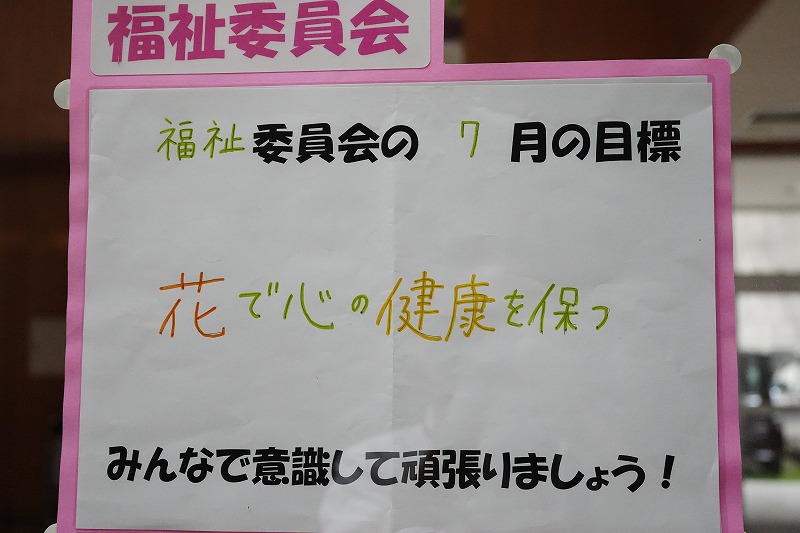 福祉委員会
福祉委員会の 7 月の目標
花で心の健康を保つ
みんなで意識して頑張りましょう！